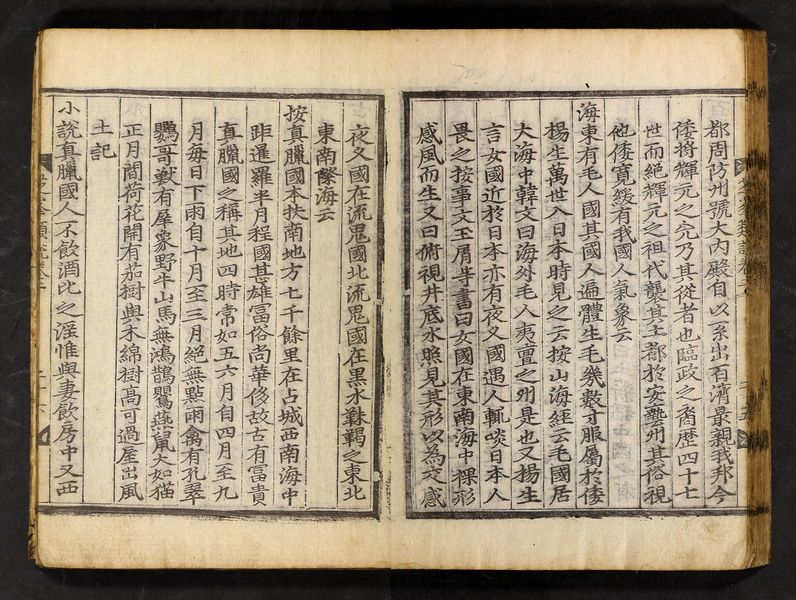 都周防州號大內殿自以系出百濟最親我邦今
倭將輝元之先乃其從者也臨政之裔歷四十七
世而絶輝元之祖代襲其土都於安藝州其俗視
他倭寬緩有我國人氣象云
海東有毛人國其國人遍體生毛幾數寸服屬於倭
楊生萬世入日本時見之云按山海經云毛國居
大海中韓文曰海外毛人夷亶之州是也又楊生
言女國近於日本亦有夜叉國遇人輒啖日本人
畏之按事文玉屑等書曰女國在東南海中裸形
感風而生又曰俯視井底水照見其形以為交感
夜叉國在流鬼國北流鬼國在黑水靺鞨之東北
東南際海云
按真臘國本扶南地方七千餘里在占城西南海中
距暹羅半月程國甚雄富俗尚華侈故古有富貴
真臘國之稱其地四時常如五六月自四月至九
月每日下雨自十月至三月絶無點雨禽有孔翠
鸚哥獸有犀象野牛山馬無鴻鵲鸎燕鼠大如猫
正月間荷花開有茄樹與木綿樹高可過屋出風
土記
小說真臘國人不飮酒比之淫惟與妻飮房中又西